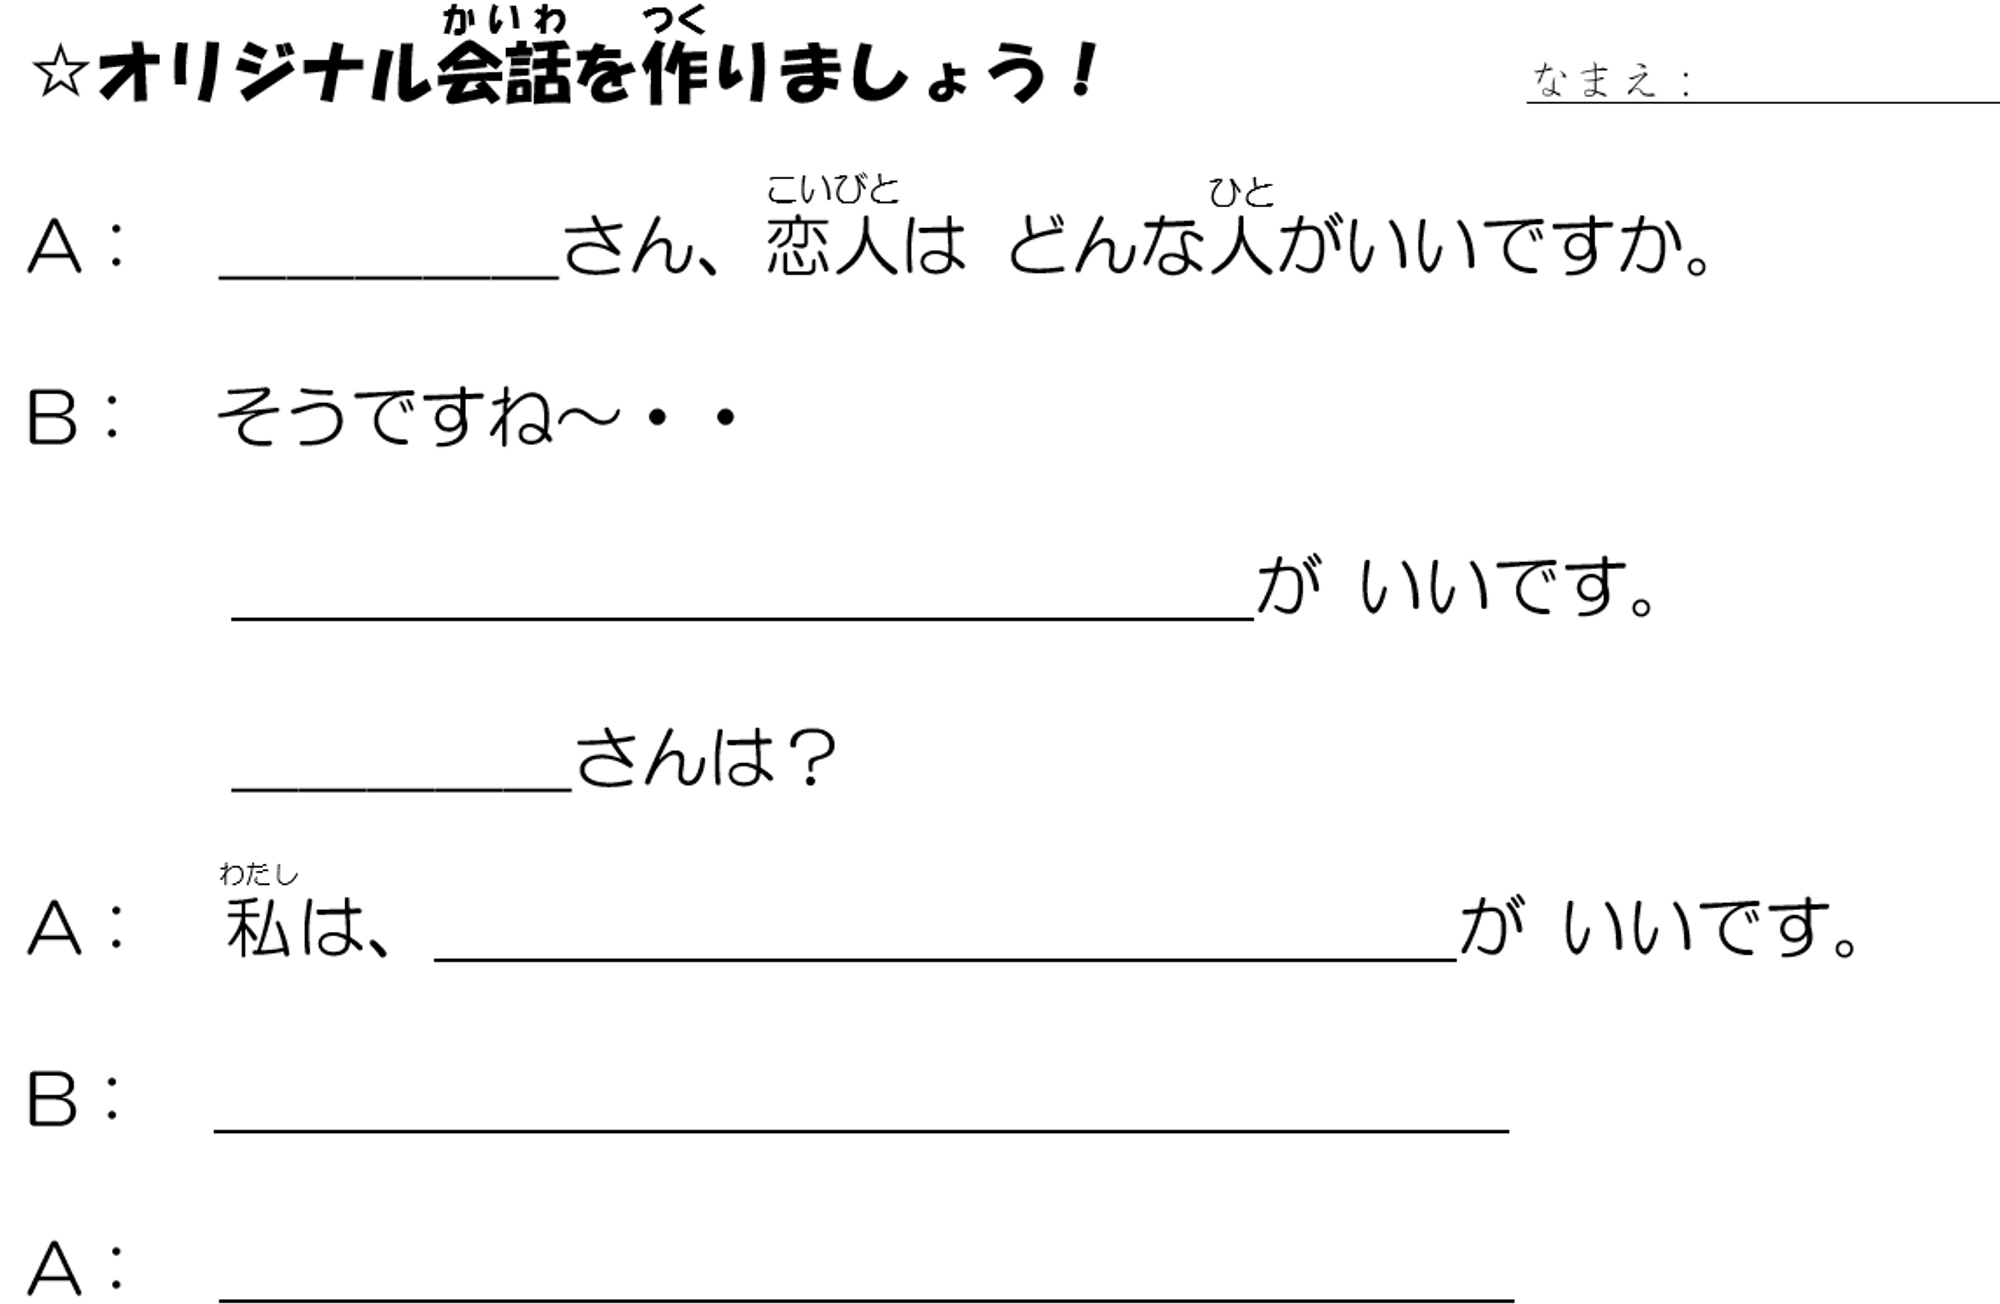 かいわ つく
☆オリジナル会話を作りましょう！
なまえ：
こいびと ひと
A： ＿＿＿＿＿さん、恋人は どんな人がいいですか。
B： そうですね～・・
＿＿＿＿＿＿＿＿＿＿＿＿＿＿＿が いいです。
＿＿＿＿＿さんは？
わたし
A： 私は、＿＿＿＿＿＿＿＿＿＿＿＿＿＿＿が いいです。
B： ＿＿＿＿＿＿＿＿＿＿＿＿＿＿＿＿＿＿＿
A： ＿＿＿＿＿＿＿＿＿＿＿＿＿＿＿＿＿＿＿